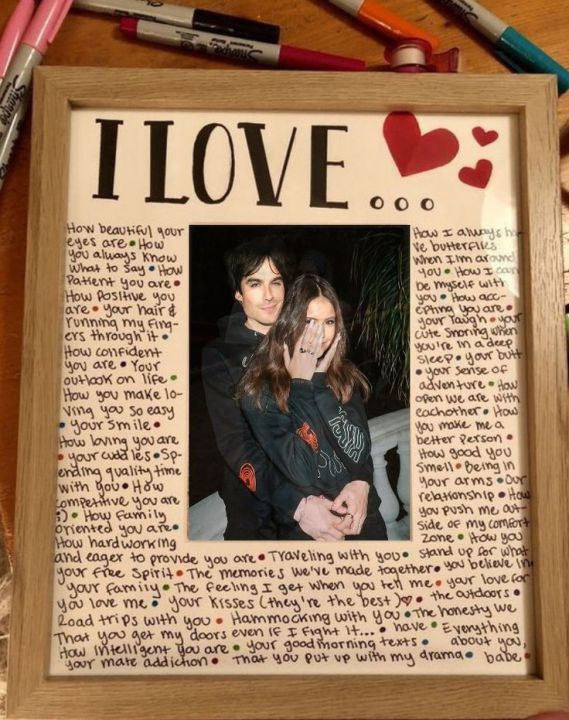 I LOVE...
How beautiful your
eyes are • How
you always know
what to say • How
Patient you are •
How Positive you
are • your hair &
running my fing-
ers through it •
How confident
you are • Your
outlook on life •
How you make lo-
ving you so easy
• your smile •
How loving you are
• your cuddles • Sp-
ending quality time
with you • How
competitive you are
;) • How family
oriented you are •
How hardworking
How I always ha-
ve butterflies
when I'm around
you • How I can
be myself with
you • How acc-
epting you are •
your laugh • your
cute snoring when
you're in a deep
sleep • your butt
• your sense of
adventure • How
open we are with
eachother • How
you make me a
better person •
How good you
smell • Being in
your arms • Our
relationship • How
you push me out-
side of my comfort
zone • How you
and eager to provide you are • Traveling with you • stand up for what
your free Spirit • The memories we've made together • you believe in
your family • The feeling I get when you tell me • your love for
you love me • your kisses (they're the best)♡ • the outdoors •
Road trips with you • Hammocking with you • The honesty we
That you get my doors even if I fight it... • have • Everything
How intelligent you are • your good morning texts • about you,
your mate addiction • That you put up with my drama • babe.
Sharpie
Sharpie
Sharpie